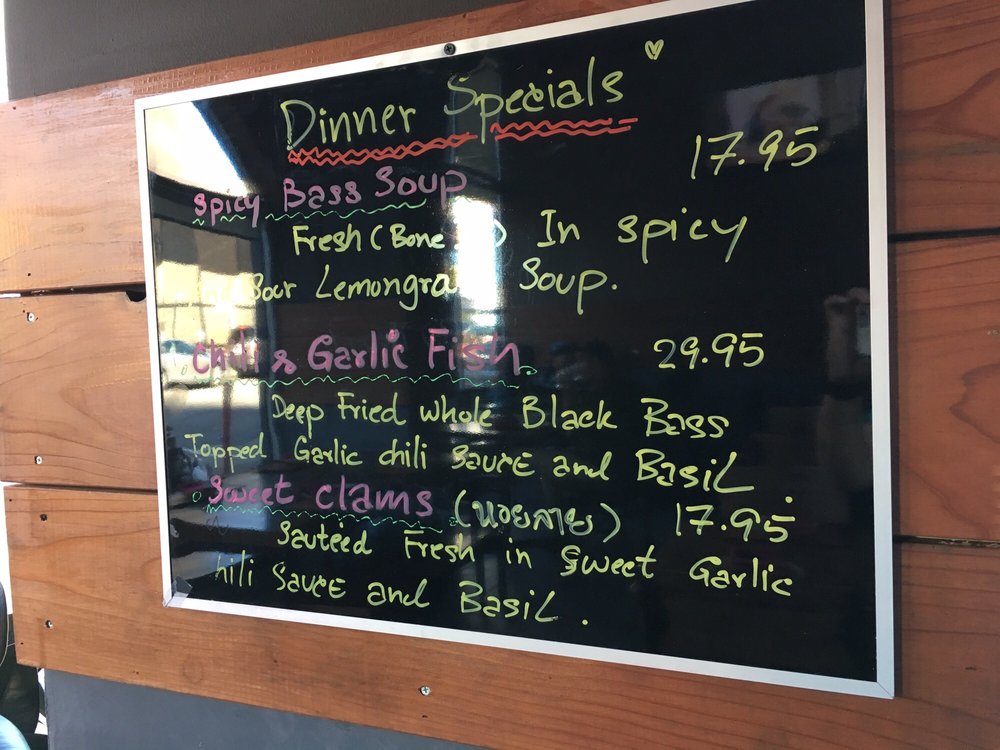 Dinner Specials
17.95
Spicy Bass Soup
Fresh (Bone ) In spicy
Sour Lemongra Soup.
Chili & Garlic Fish. 29.95
Deep Fried whole Black Bass
Topped Garlic chili Sauce and Basil.
Sweet clams (หอยลาย) 17.95
Sauteed Fresh in Sweet Garlic
hili Sauce and Basil.